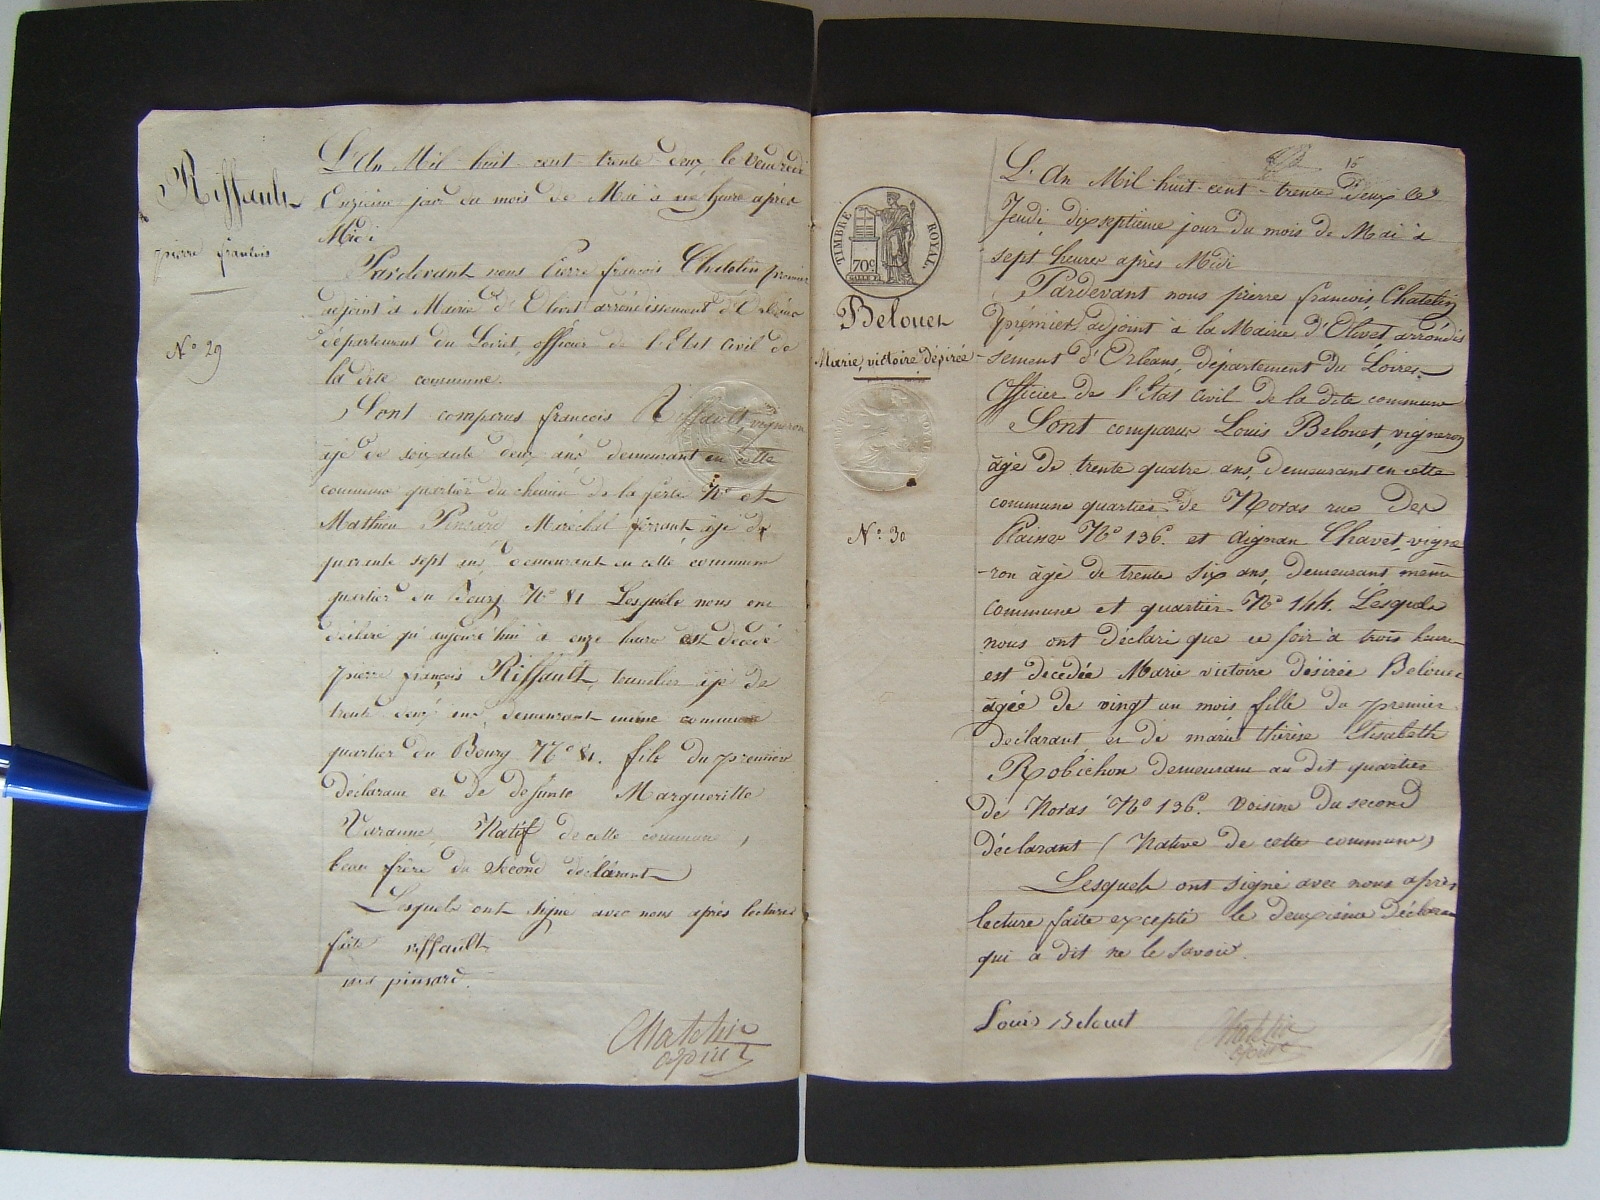 Riffault
pierre francois
N° 29
L'An Mil huit cent trente deux, le Vendredi
Onzieme jour du mois de Mai à une heure après
Midi
Pardevant nous Pierre françois Chatelin premier
adjoint à Mairie d'Olivet arrondissement d'Orléans
département du Loiret, officier de l'Etat Civil de
la dite commune.
Sont comparus françois Riffault, vigneron
âgé de soixante deux ans demeurant en cette
commune quartier du chemin de la ferte N° et
Mathieu Pinsard Maréchal ferrant, âgé de
quarante sept ans, demeurant en cette commune
quartier du Bourg N° 81 Lesquels nous ont
déclaré qu'aujourd'hui à onze heure est décédé
pierre françois Riffault, tonnelier âgé de
trente deux ans, demeurant même commune
quartier du Bourg N° 81. fils du premier
déclarant et de defunte Margueritte
Varanne, Natif de cette commune,
beau frère du Second déclarant
Lesquels ont signé avec nous après lecture
faite riffault
pinsard.
Chatelin
adjoint
15
TIMBRE ROYAL
70c
Belouet
Marie, victoire désirée
N° 30
L'An Mil huit cent trente Deux le
Jeudi, dixseptieme jour du mois de Mai à
sept heures après Midi
Pardevant nous pierre françois Chatelin
premier adjoint à la Mairie d'Olivet, arrondis
-sement d'Orléans, département du Loiret
Officier de l'Etat Civil de la dite commune
Sont comparus Louis Belouet, vigneron
âgé de trente quatre ans, demeurant en cette
commune quartier de Noras rue des
Plaises N° 136. et Aignan Chavet, vigne
-ron âgé de trente six ans, demeurant même
commune et quartier N° 144. Lesquels
nous ont déclaré que ce soir à trois heures
est décédée Marie victoire désirée Belouet
âgée de vingt un mois, fille du premier
déclarant, et de marie thérèse Elisabeth
Robichon demeurant au dit quartier
de Noras N° 136. voisine du second
déclarant (Native de cette commune)
Lesquels ont signé avec nous après
lecture faite excepté le deuxième déclarant
qui a dit ne le savoir.
Louis Belouet
Chatelin
adjoint